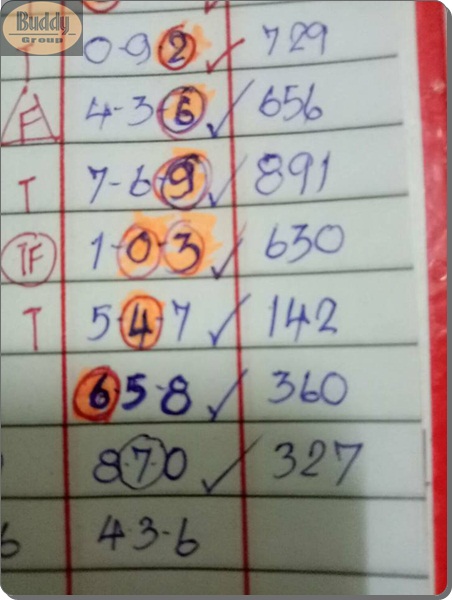 Buddy
Group
0-9-2 ✓ 729
F 4-3-6 ✓ 656
T 7-6-9 ✓ 891
TF 1-0-3 ✓ 630
T 5-4-7 ✓ 142
6-5-8 ✓ 360
8-7-0 ✓ 327
4-3-6